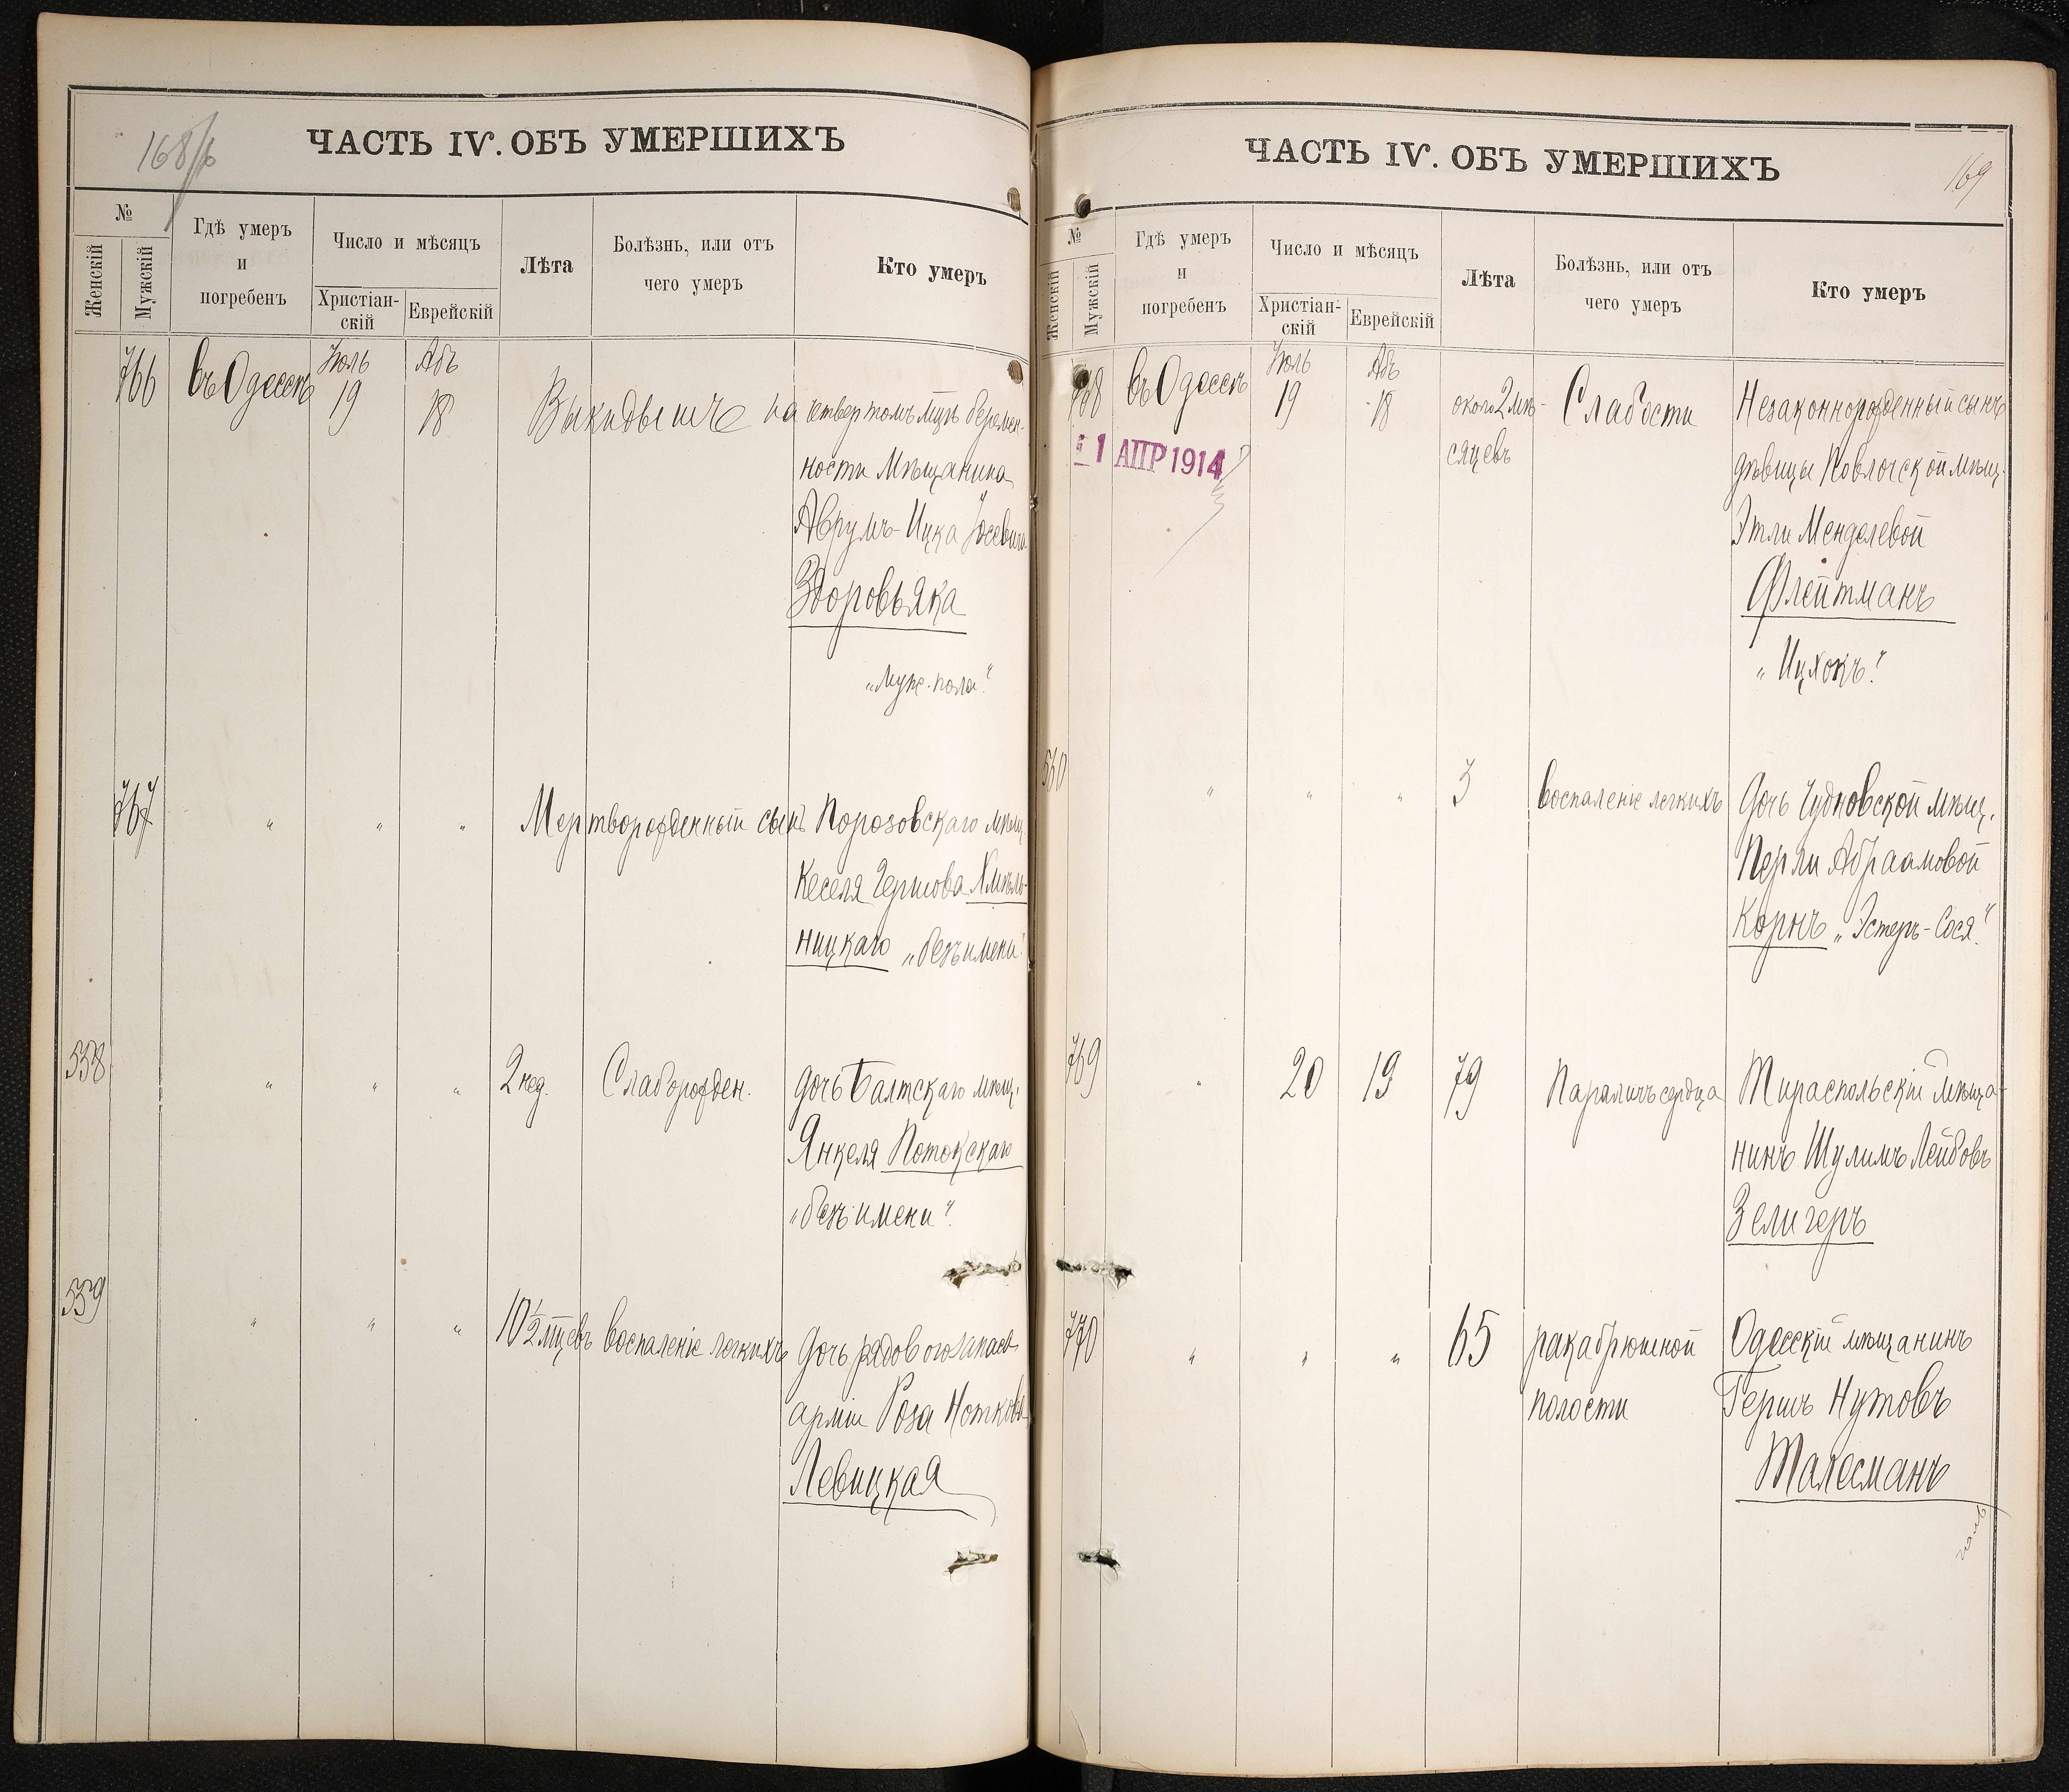 168/b
ЧАСТЬ IV. ОБЪ УМЕРШИХЪ
№
Женскій
Мужскій
Гдѣ умеръ
и
погребенъ
Число и мѣсяцъ
Христіан-
скій
Еврейскій
Лѣта
Болѣзнь, или отъ
чего умеръ
Кто умеръ
766 въ Одессѣ Іюль 19 Абъ 18 Выкидышъ на четвертомъ мцѣ беремен-
ности Мѣщанина
Аврумъ-Ицка Іосевича
Здоровьяка
„Муж. пола“.
767 " " " Мертворожденный сынъ Порозовскаго мѣщ.
Кеселя Гершова Хмѣль-
ницкаго „безъ имени“.
558 " " " 2 нед. Слаборожден. дочь Балтскаго мѣщ.
Янкеля Потокскаго
„безъ имени“.
559 " " " 10½ мцевъ воспаленіе легкихъ дочь рядового запаса
арміи Роза Ноткова
Левицкая
169
ЧАСТЬ IV. ОБЪ УМЕРШИХЪ
№
Женскій
Мужскій
Гдѣ умеръ
и
погребенъ
Число и мѣсяцъ
Христіан-
скій
Еврейскій
Лѣта
Болѣзнь, или отъ
чего умеръ
Кто умеръ
768 въ Одессѣ Іюль 19 Абъ 18 около 2 мѣ- Слабости Незаконнорожденный сынъ
1 АПР 1914
сяцевъ дѣвицы Поволочской мѣщ.
Этли Менделевой
Флейтманъ
„Ицхокъ“.
560 " " " 3 воспаленіе легкихъ дочь Чудновской мѣщ.
Перли Абраамовой
Корнъ „Эстеръ-Сося“.
769 " 20 19 79 Параличъ сердца Тираспольскій Мѣща-
нинъ Шулимъ Лейбовъ
Зелигеръ
770 " " " 65 рака брюшной Одесскій мѣщанинъ
полости Гершъ Нутовъ
Талесманъ